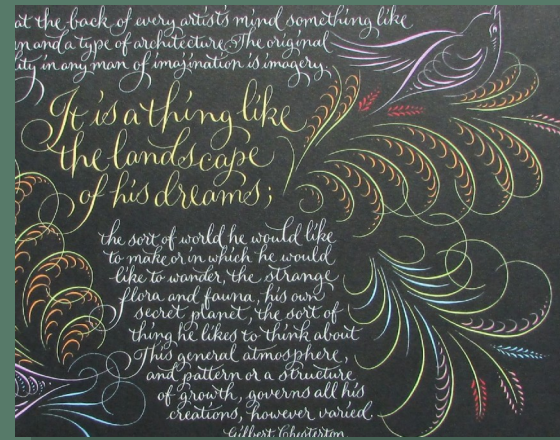 at the back of every artist's mind something like
n and a type of architecture. The original
ity in any man of imagination is imagery.
It is a thing like
the landscape
of his dreams;
the sort of world he would like
to make or in which he would
like to wander, the strange
flora and fauna, his own
secret planet, the sort of
thing he likes to think about
This general atmosphere,
and pattern or a structure
of growth, governs all his
creations, however varied.
Gilbert Chesterton